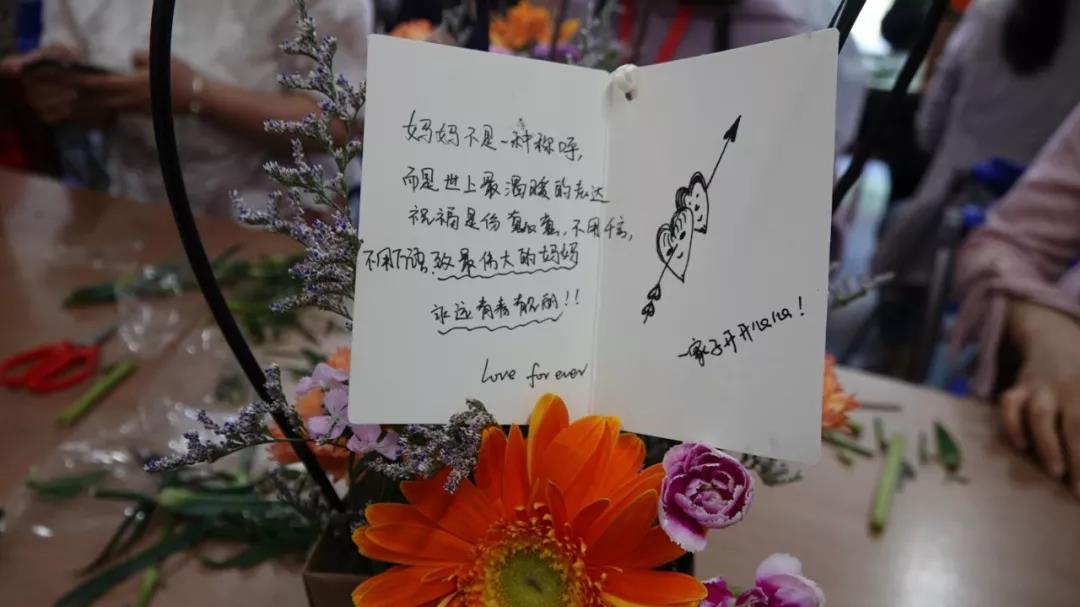 妈妈不是一种称呼,
而是世上最温暖的表达
祝福是份真心意,不用千言,
不用万语,致最伟大的妈妈
永远青春靓丽!!
Love forever
一家子开开haha!